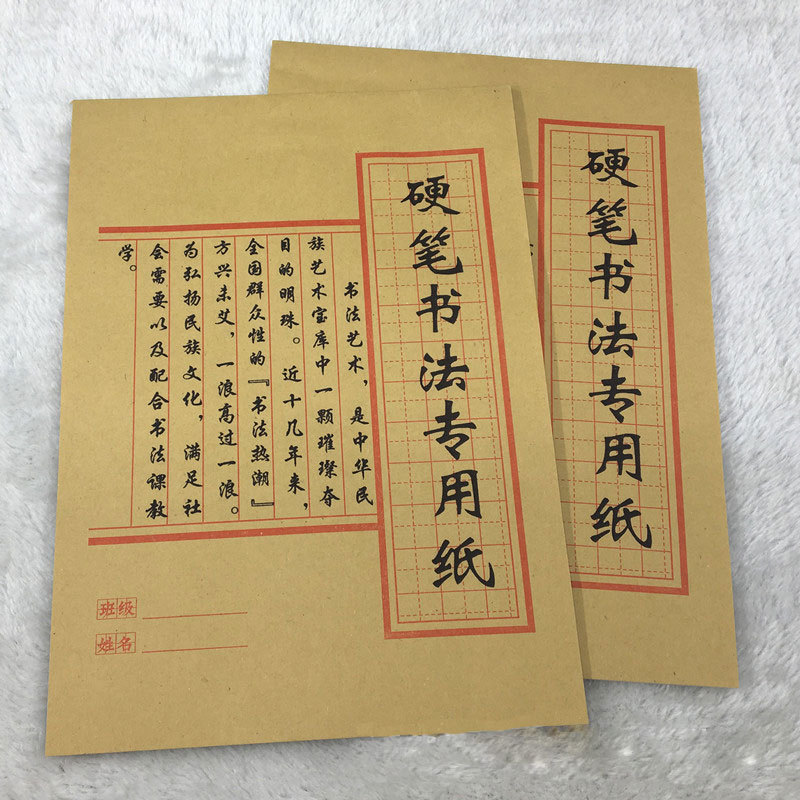 硬笔书法专用纸
书法艺术，是中华民
族艺术宝库中一颗璀璨夺
目的明珠。近十几年来，
全国群众性的『书法热潮』
方兴未艾，一浪高过一浪。
为弘扬民族文化，满足社
会需要以及配合书法课教
学。
班级
姓名
硬笔书法专用纸